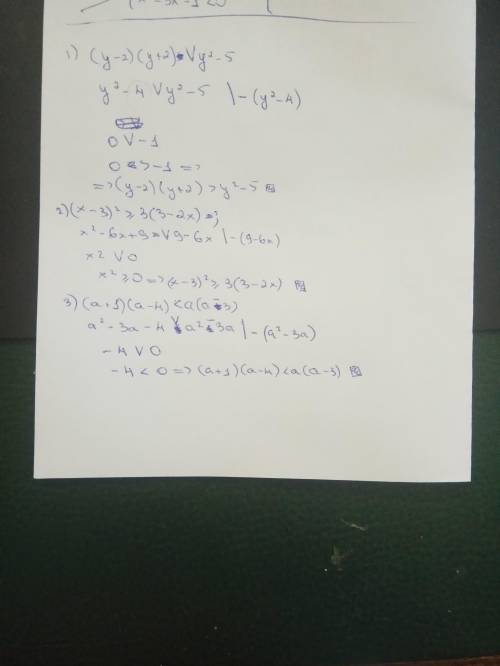 (x²-3x-1<0
1) (y-2)(y+2) V y²-5
y²-4 V y²-5 |-(y²-4)
0 V -1
0 > -1 =>
=> (y-2)(y+2) > y²-5
2) (x-3)² ≥ 3(3-2x)
x²-6x+9 V 9-6x |-(9-6x)
x² V 0
x² ≥ 0 => (x-3)² ≥ 3(3-2x)
3) (a+1)(a-4) < a(a-3)
a²-3a-4 V a²-3a |-(a²-3a)
-4 V 0
-4 < 0 => (a+1)(a-4) < a(a-3)